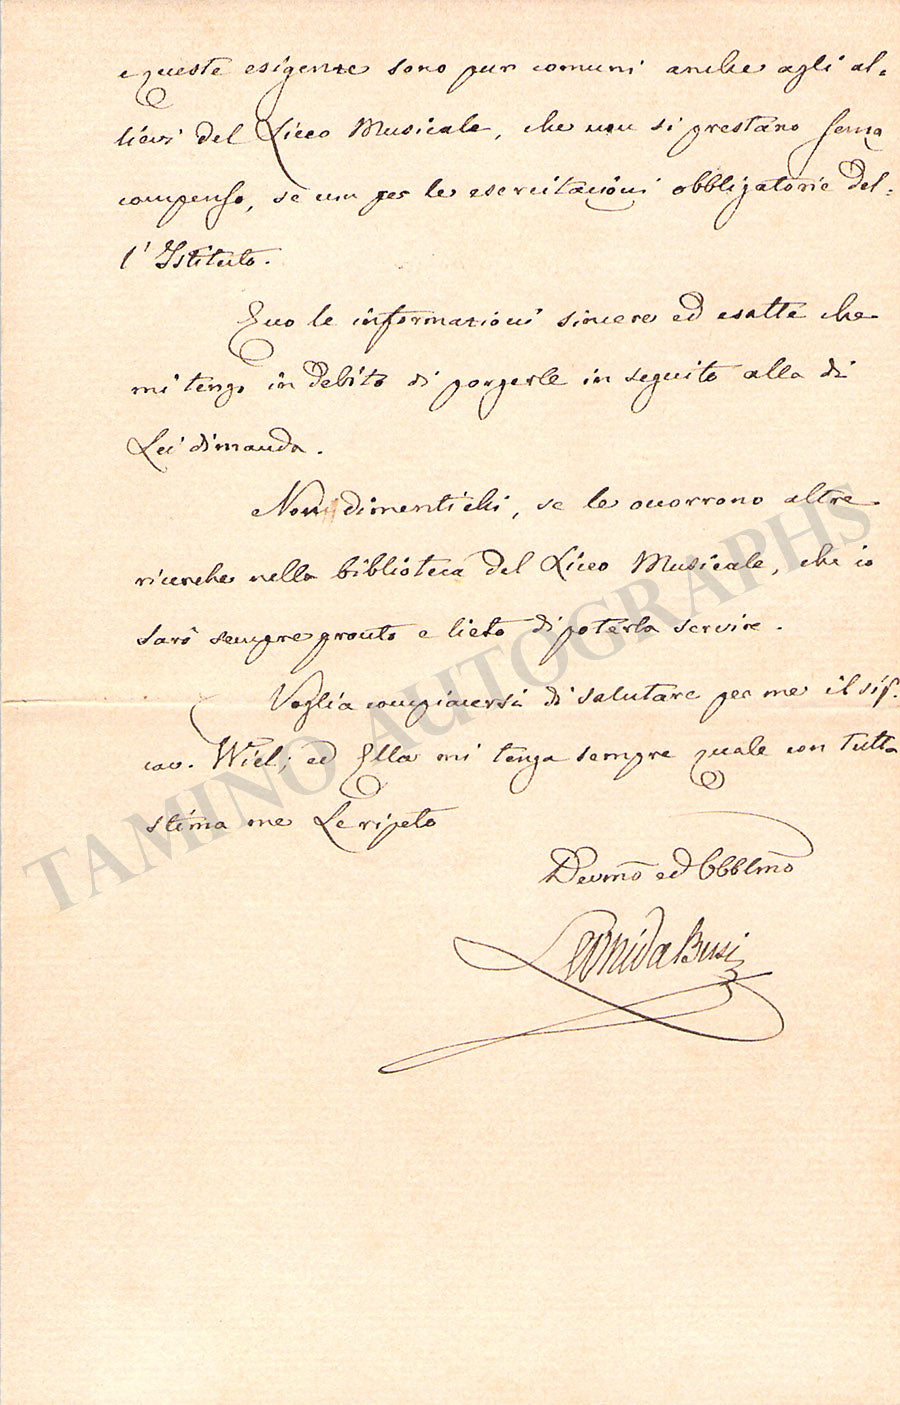 e queste esigenze sono pur comuni anche agli al-
lievi del Liceo Musicale, che non si prestano senza
compenso, se non per le esercitazioni obbligatorie del-
l'Istituto.
Ecco le informazioni sincere ed esatte che
mi tengo in debito di porgerle in seguito alla di
Lei dimanda.
Non dimentichi, se le occorrono altre
ricerche nella biblioteca del Liceo Musicale, che io
sarò sempre pronto e lieto di poterla servire.
Voglia compiacersi di salutare per me il sig.
cav. Wiel; ed Ella mi tenga sempre quale con tutta
stima me Le ripeto
Devmo ed Obblmo
Leonida Busi
TAMINO AUTOGRAPHS